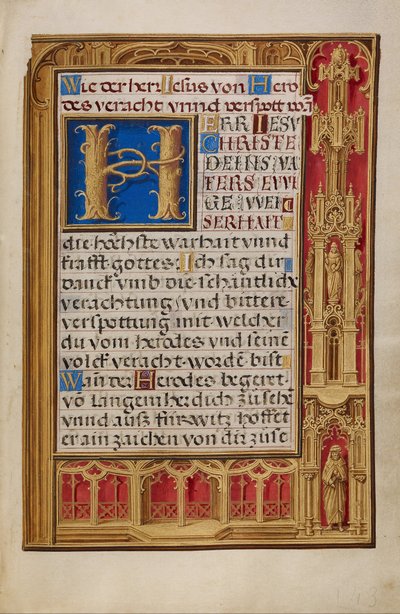 Wie der herr Iesus von Hero
des veracht vnnd verspott ward
HERR IESV
CHRISTE
DEINS VA
TERS EWI
GE WEI
SERHAFT
die höchste warhait vnnd
krafft gottes: Ich sag dir
danck vmb die schantlich
verachtung vnd bittere
verspottung mit welcher
du vom herodes vnd seinē
volck veracht wordē bist
Wan der Herodes begeret
vō langem her dich zu sehē
vnnd ausz fürwitz hoffet
er ain zaichen von dir zu se